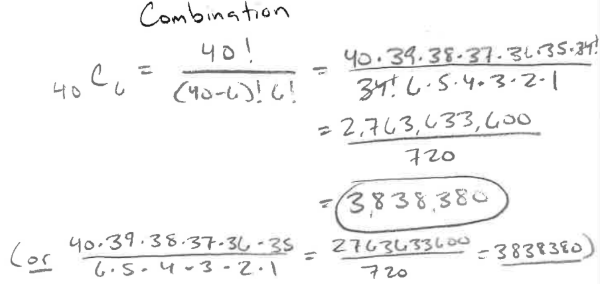 Combination
₄₀C₆ = 40! / (40-6)! 6! = 40·39·38·37·36·35·34! / 34! 6·5·4·3·2·1
= 2,763,633,600 / 720
= 3,838,380
(or 40·39·38·37·36·35 / 6·5·4·3·2·1 = 2763633600 / 720 = 3838380)